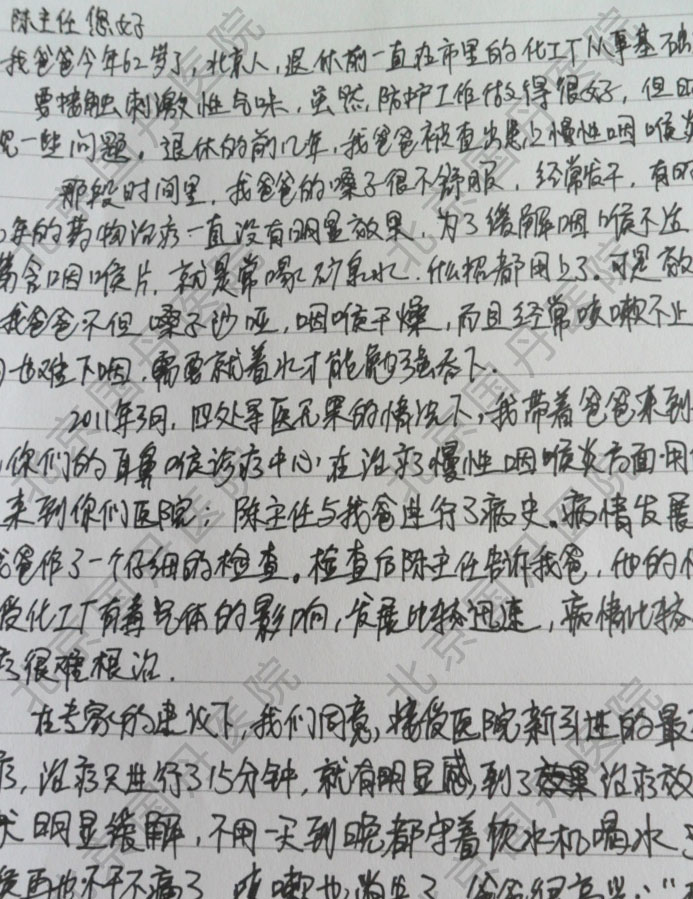 陈主任您好
我爸爸今年62岁了,北京人,退休前一直在市里的化工厂从事基础
要接触刺激性气味,虽然,防护工作做得很好,但
一些问题。退休的前几年,我爸爸被查出患上慢性咽喉炎
那段时间里,我爸爸的嗓子很不舒服,经常发干,有时
年的药物治疗一直没有明显效果,为了缓解咽喉不适
含咽喉片,就是常喝矿泉水.什么招都用上了。可是效
我爸爸不但嗓子沙哑,咽喉干燥,而且经常咳嗽不止
也难下咽,需要就着水才能勉强吞下.
2011年3月,四处寻医无果的情况下,我带着爸爸来到
你们的耳鼻喉诊疗中心,在治疗慢性咽喉炎方面用
来到你们医院;陈主任与我爸进行了病史。病情发展
爸作了一个仔细的检查。检查后陈主任告诉我爸,他的
受化工厂有毒气体的影响,发展比较迅速,病情比较
很难根治.
在专家的建议下,我们同意,接受医院新引进的最
疗,治疗只进行了15分钟,就有明显感到了治疗效
状明显缓解,不用一天到晚都守着饮水机喝水
再也不干不痛了 咳嗽也消失了
北京国丹医院
北京国丹医院
北京国丹医院
北京国丹医院
北京国丹医院
北京国丹医院